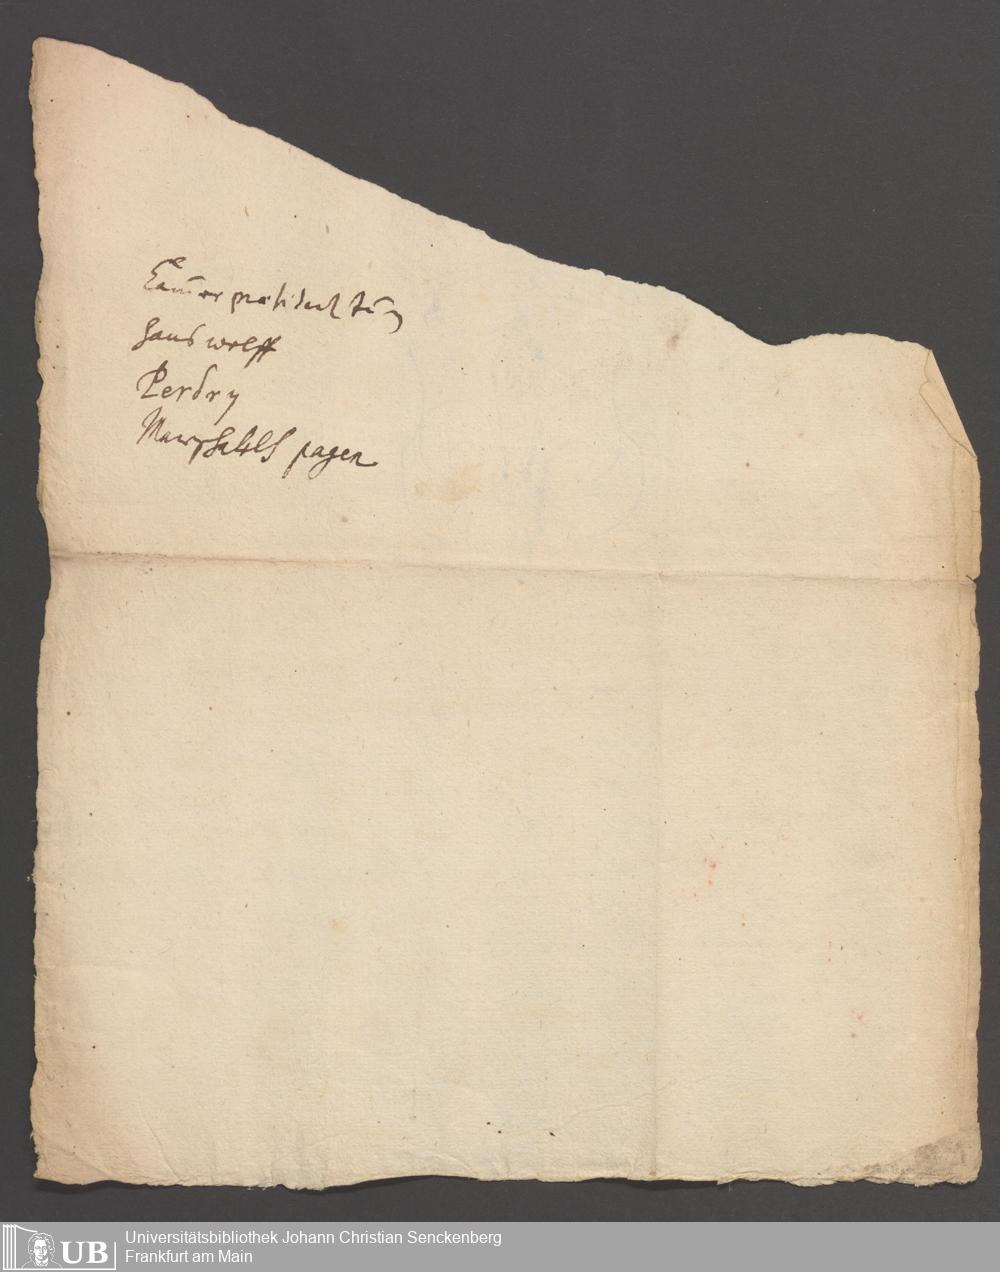 Cam̄er præsident
hans wolff
Perdry
Marschalls pagen
UB Universitätsbibliothek Johann Christian Senckenberg
Frankfurt am Main